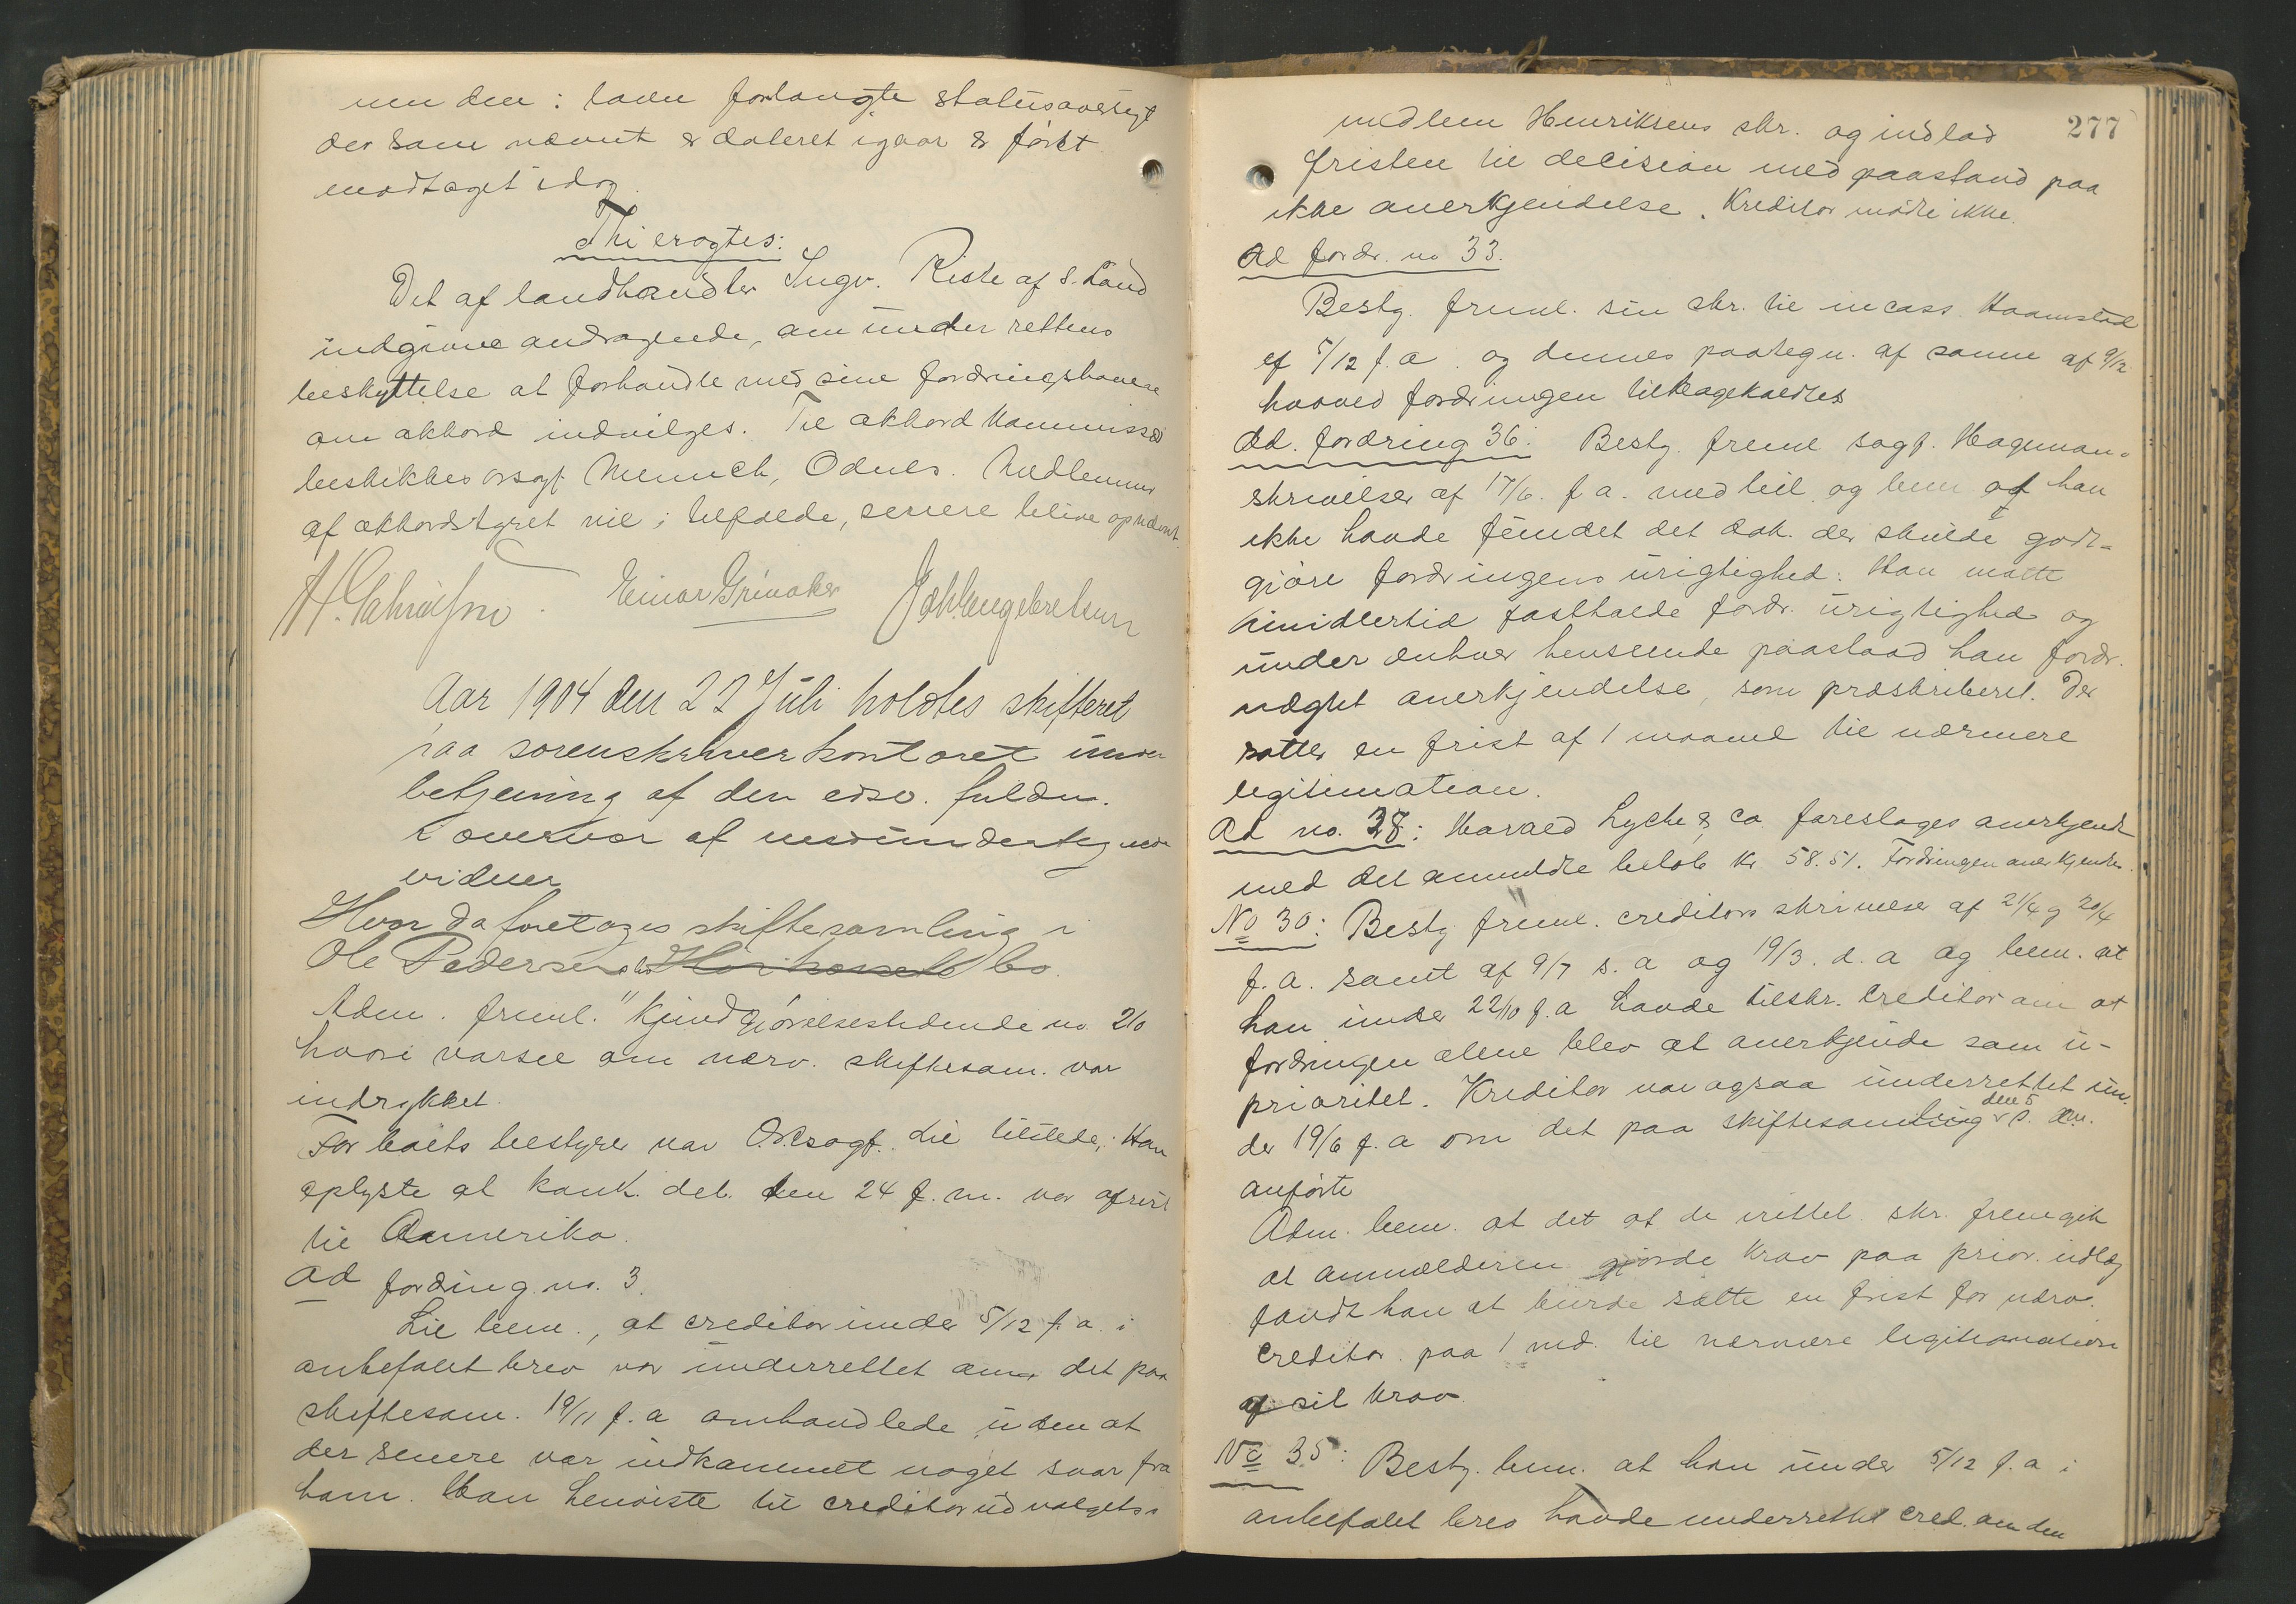 men den i loven forlangte statusoversigt
der som nævnt er dateret igaar & først
modtaget idag.
Thi eragtes:
Det af landhandler Ingv. Riste af S. Land
indgivne andragende, om under rettens
beskyttelse at forhandle med sine fordringshavere
om akkord indvilges. Til akkord kommissær
beskikkes orsagf. Munch, Odnes. Medlemmer
af akkordstyret vil i tilfælde, senere blive opnævnt.
Einar Grinaker Joh. Engebretsen
Aar 1904 den 22 Juli holdtes skifteret
paa sorenskriverkontoret under
betjening af den edsv. fuldm.
i overvær af medundertegnede
vidner
Hvor da foretoges skiftesamling i
Ole Pedersen bo.
Adm. freml. "Kjundgjørelsestidende no. 210
hvori varsel om nærv. skiftesam. var
indrykket.
For boets bestyrer var O.r.sagf. Lie tilstede; Han
oplyste at konk. deb. den 24 f. m. var afreist
til Amerika.
ad fordring no. 3.
Lie bem., at creditor under 5/12 f. a. i
anbefalet brev var underrettet om det paa
skiftesam. 19/11 f. a omhandlede uden at
der senere var indkommet noget svar fra
ham. Han henviste til creditorudvalgets
277
medlem Henriksens skr. og indlod
fristen til decision med paastand paa
ikke anerkjendelse. Kreditor mødte ikke.
Ad fordr. no 33.
Besty. freml. sin skr. til incass. Haamstad
af 5/12 f. a. og dennes paategn. af samme af 9/12
hvorved fordringen tilbagekaldtes
Ad. fordring 36: Besty. freml sagf. Hageman-
skrivelse af 17/6. f a. med bil og bem af han
ikke havde fundet det dok. der skulde godt-
gjøre fordringens urigtighed. Han maatte
imidlertid fastholde fordr. urigtighed og
under enhver henseende paastaad han fordr.
nægtet anerkjendelse, som præskriberet. Der
sattes en frist af 1 maaned til nærmere
legitimation.
Ad no. 28: Harald Lyche & Co foreslages anerkjendt
med det anmeldte beløb Kr 58.51. Fordringen anerkjendtes.
No 30: Besty freml. creditors skrivelse af 21/4 og 20/4
f. a. samt af 9/7 s. a og 19/3. d. a og bem. at
han under 22/10 f. a havde tilskr. Creditor om at
fordringen alene blev at anerkjende som u-
prioritet. Kreditor var ogsaa underrettet un-
der 19/6 f. a om det paa skiftesamling den 5 s. m.
anførte
Adm. bem. at det af de irettel. skr. fremgik
at anmelderen gjorde krav paa prior. udlæg
fandt han at burde sætte en frist for nærv.
Creditor paa 1 md. til nærmere legitimation
af sit krav
No 35: Besty. bem. at han under 5/12 f. a i
anbefalet brev havde underrettet cred. om den